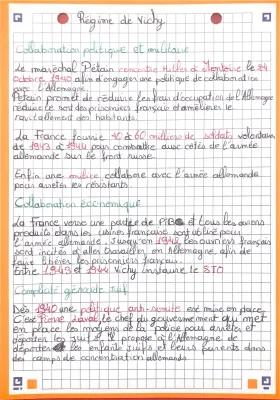 Régime de Vichy
Collaboration politique et militaire
Le maréchal Pétain rencontre Hitler à Montoire le 24
octobre 1940 afin d'engager une politique de collaboration
avec l'Allemagne.
Pétain promet de réduire les frais d'occupation de l'Allemagne
réduire le sort des prisonniers français et améliorer le
ravitaillement des habitants.
La France fournie 40 à 60 milliers de soldats volontaires
de 1943 à 1944 pour combattre aux côtés de l'armée
allemande sur le front russe.
Enfin une milice collabore avec l'armée allemande
pour arrêter les résistants.
Collaboration économique
La France verse une partie de PIB et tous les avions
produits dans les usines françaises sont utilisé pour
l'armée allemande. Jusqu'en 1942 les ouvriers français
sont incités d'aller travailler en Allemagne afin de
faire libérer les prisonniers français.
Entre 1943 et 1944 Vichy instaure le STO
Complicité génocide Juif
Dès 1940 une politique anti-sémite est mise en place
C'est Pierre Laval, le chef du gouvernement qui met
en place les moyens de la police pour arrêter et
déporter les juifs. Il propose à l'Allemagne de
déporter les enfants juifs et leurs parents dans
des camps de concentration allemands.